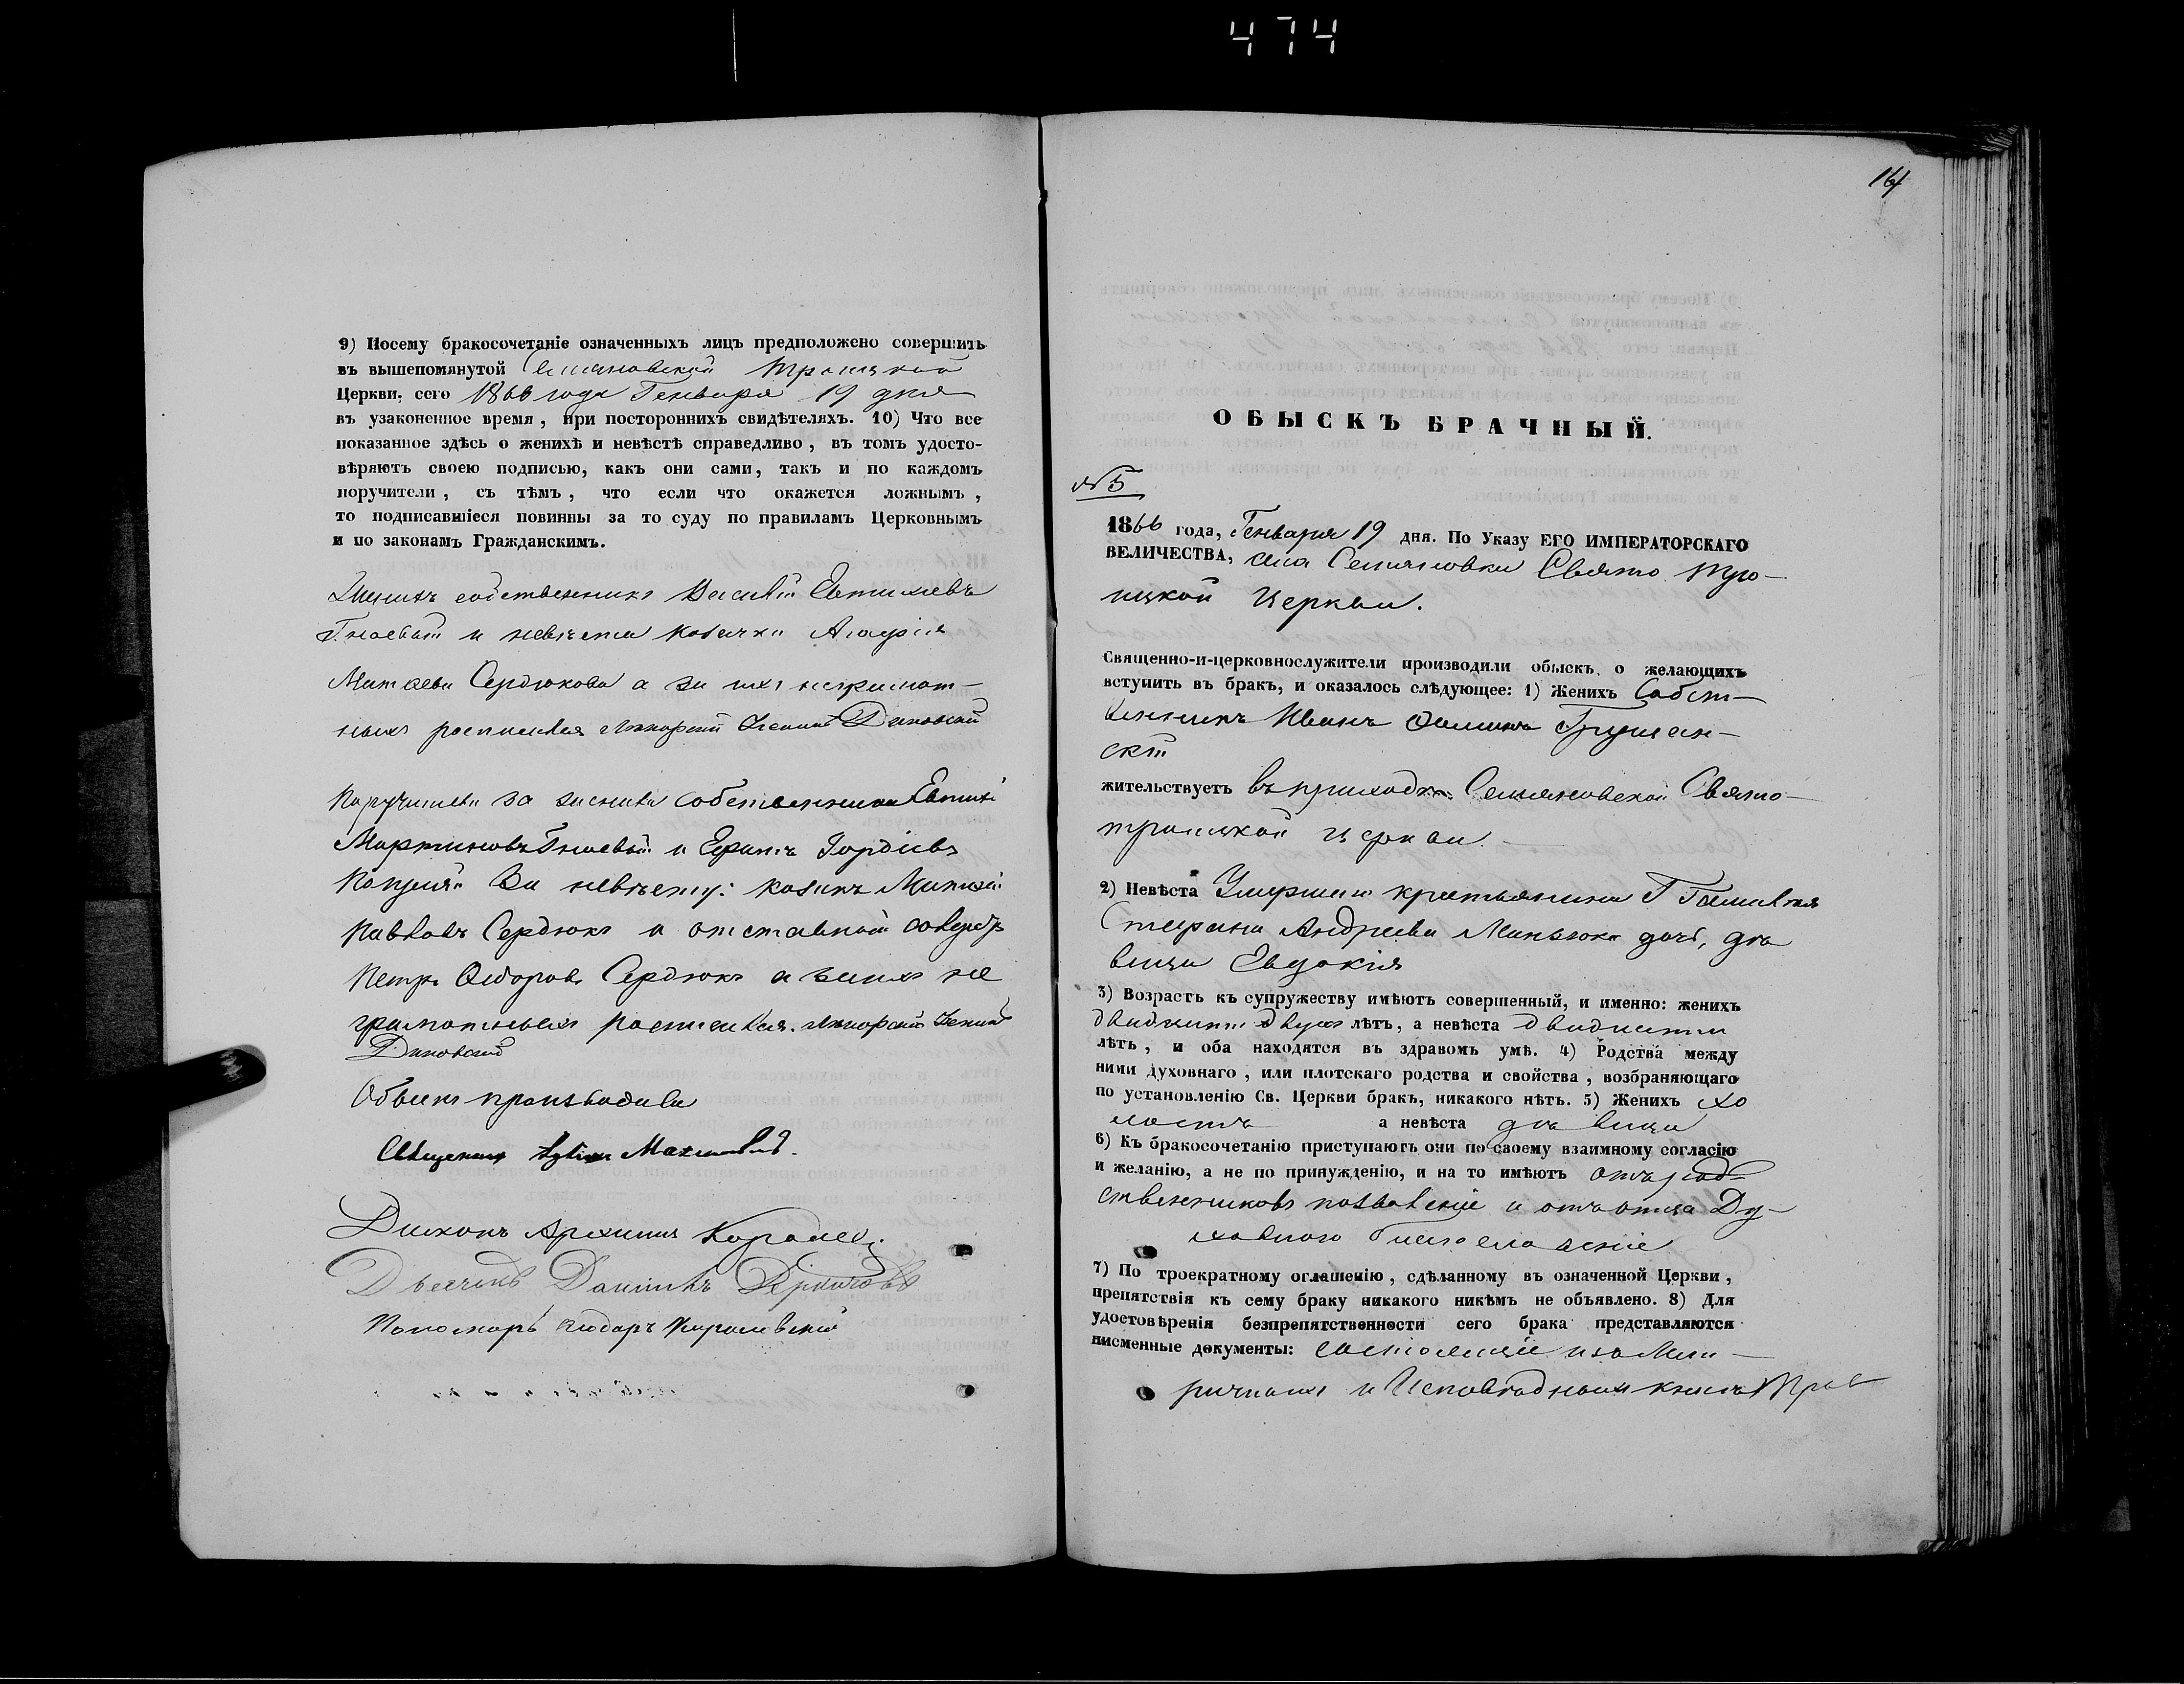 474
9) Посему бракосочетаніе означенныхъ лицъ предположено совершить
въ вышепомянутой Семяновской Троицкой
Церкви, сего 1866 года Генваря 19 дня
въ узаконенное время, при постороннихъ свидѣтеляхъ. 10) Что все
показанное здѣсь о женихѣ и невѣстѣ справедливо, въ томъ удосто-
вѣряютъ своею подписью, какъ они сами, такъ и по каждомъ
поручители, съ тѣмъ, что если что окажется ложнымъ,
то подписавшіеся повинны за то суду по правиламъ Церковнымъ
и по законамъ Гражданскимъ.
Женихъ собственникъ Василій Евтихіевъ
Гноевый и невѣста козачка Агафія
Матѳева Сердюкова а за ихъ неграмот-
ныхъ росписался
Поручители за жениха собственники Евтихій
Мартиновъ Гноевый и Гордіевъ
За невѣсту: козакъ Матѳей
Павловъ Сердюкъ и отставной
Петръ Ѳедоровъ Сердюкъ а за ихъ не
грамотныхъ росписался
Обыскъ производили
Священникъ
Диаконъ Архипъ
Дьячекъ Даніилъ
Пономарь Ѳедоръ
164
ОБЫСКЪ БРАЧНЫЙ.
№ 5
1866 года, Генваря 19 дня. По Указу ЕГО ИМПЕРАТОРСКАГО
ВЕЛИЧЕСТВА, села Семяновки Свято Тро-
ицкой Церкви.
Священно-и-церковнослужители производили обыскъ о желающихъ
вступить въ бракъ, и оказалось слѣдующее: 1) Женихъ Собст-
венникъ Иванъ Ѳоминъ Грушан-
скій
жительствуетъ въ приходѣ Семяновской Свято-
троицкой церкви.
2) Невѣста Умершаго крестьянина
Стефана Андреева дочь, дѣ
вица Евдокія
3) Возрастъ къ супружеству имѣютъ совершенный, и именно: женихъ
двадцати двухъ лѣтъ, а невѣста двадцати
лѣтъ, и оба находятся въ здравомъ умѣ. 4) Родства между
ними духовнаго, или плотскаго родства и свойства, возбраняющаго
по установленію Св. Церкви бракъ, никакого нѣтъ. 5) Женихъ хо
лостъ а невѣста дѣвица
6) Къ бракосочетанію приступаютъ они по своему взаимному согласію
и желанію, а не по принужденію, и на то имѣютъ отъ род-
ственниковъ позволеніе и отъ отца Ду-
ховного благословеніе
7) По троекратному оглашенію, сдѣланному въ означенной Церкви,
препятствія къ сему браку никакого никѣмъ не объявлено. 8) Для
удостовѣренія безпрепятственности сего брака представляются
писменные документы: состоящіе изъ Мет-
ричныхъ и Исповѣдныхъ книгъ